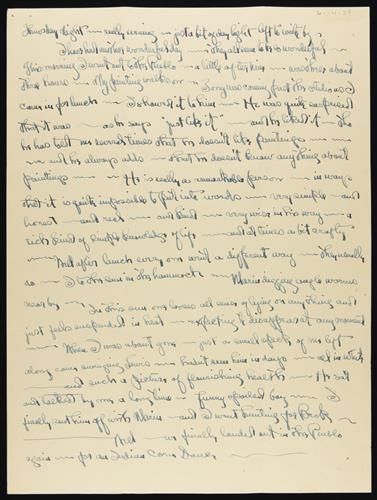 6-14-29
Thursday night — early evening — just a bit of daylight left to write by
I have had another wonderful day — they all seem to be so wonderful
This morning I went out to the Pueblo — a little after nine — was there about
three hours — My painting well —
Tony was coming from the studio as I
came in for lunch — I showed it to him — He was quite surprised
that it was — as he says "just like it" — and he liked it — He
has told me several times that he doesn't like paintings —
— and he always adds — that he doesn't know anything about
paintings — He is really a remarkable person — in ways
that it is quite impossible to put into words — very simple — and
honest — and real — and kind — very wise in his way — a
rich kind of simple knowledge of life — and at times a bit crafty
— And after lunch every one went a different way — They usually
do — I to the sun in the hammock — Marin digging angle worms
near by —
In the sun one loses all sense of lying on anything and
just feels suspended in heat — expecting to disappear at any moment
— When I was about gone — just a small speck of me left
along came — hadn't seen him in days — all in white
— and such a picture of flourishing health — He sat
and talked by me a long time — funny spoiled boy — I
finally sent him off with Marin — and I went hunting for Beck
And — we finally landed out in the Pueblo
again — for an Indian Corn Dance —